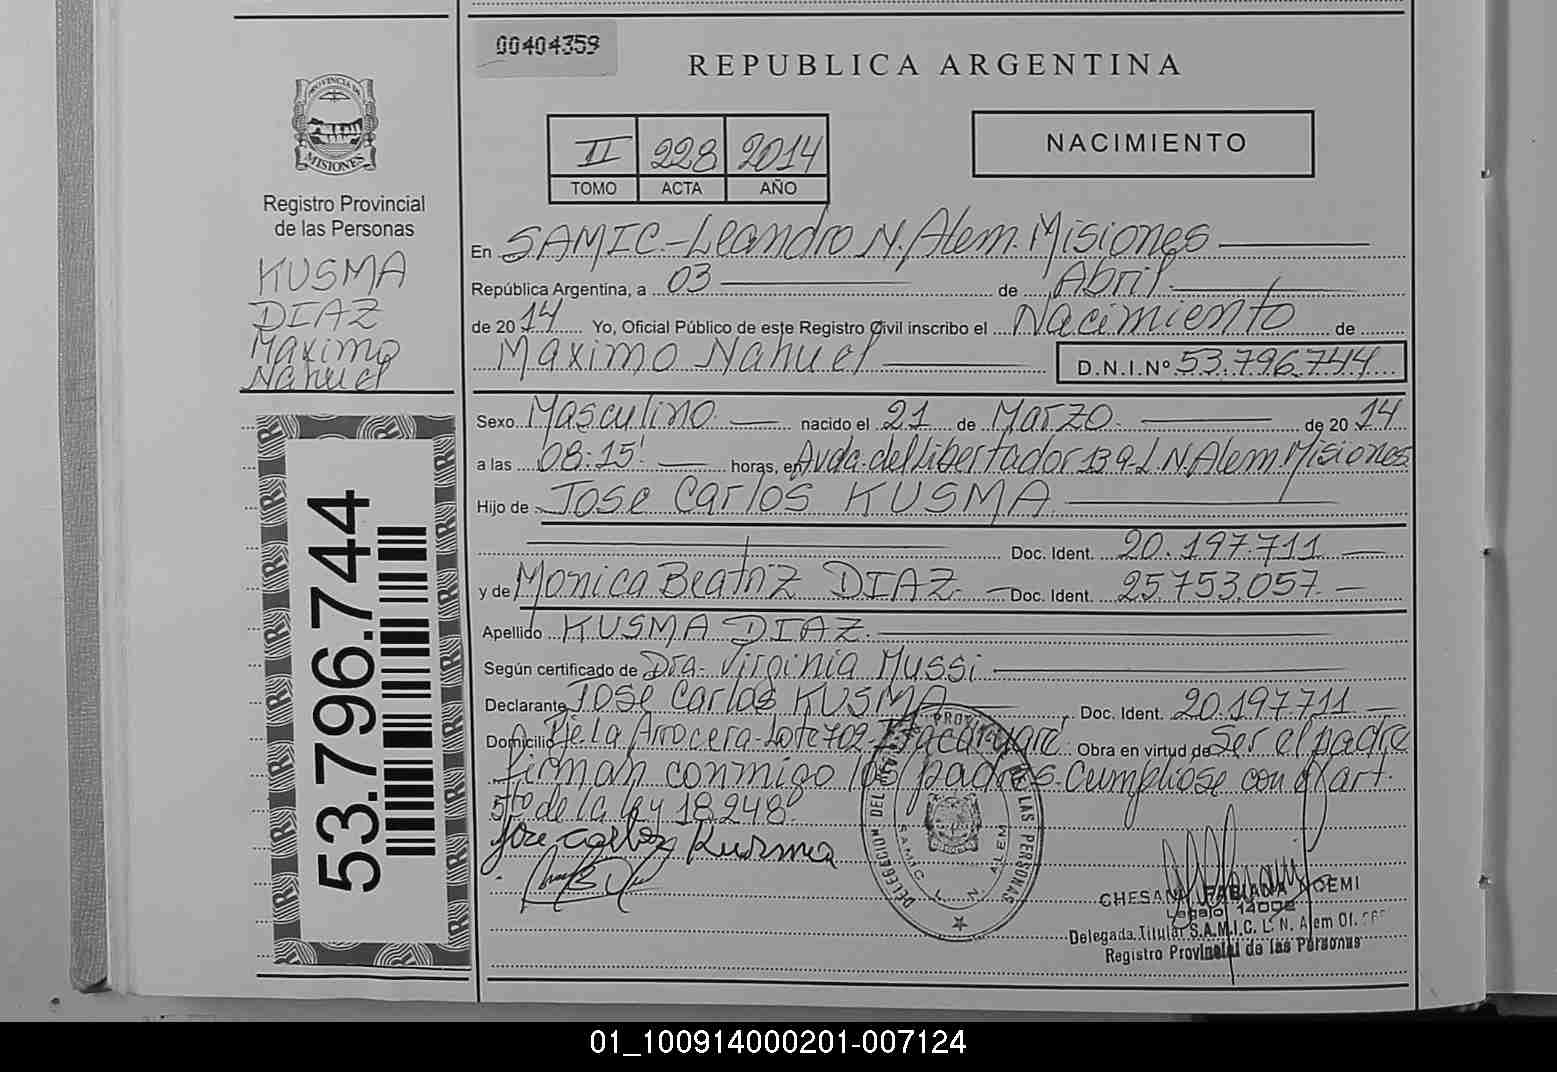 00404359
REPUBLICA ARGENTINA
PROVINCIA DE
MISIONES
Registro Provincial
de las Personas
KUSMA
DIAZ
Maximo
Nahuel
53.796.744
II 228 2014
TOMO ACTA AÑO
NACIMIENTO
En SAMIC-Leandro N. Alem. Misiones
República Argentina, a 03 de Abril
de 2014 Yo, Oficial Público de este Registro Civil inscribo el Nacimiento de
Maximo Nahuel D.N.I.Nº 53.796.744
Sexo Masculino nacido el 21 de Marzo de 2014
a las 08:15' horas, en Avda. del Libertador 139-L.N.Alem Misiones
Hijo de Jose Carlos KUSMA
Doc. Ident. 20.197.711
y de Monica Beatriz DIAZ Doc. Ident. 25.753.057
Apellido KUSMA DIAZ
Según certificado de Dra. Virginia Mussi
Declarante Jose Carlos KUSMA Doc. Ident. 20.197.711
Domicilio De la Arrocera-Lote 702- Obra en virtud de ser el padre
firman conmigo los padres. Cumpliose con el art.
5to de la ley 18.248
Jose Carlos Kusma
DELEGACION DEL REGISTRO PROVINCIAL DE LAS PERSONAS
SAMIC L. N. ALEM
CHESANI, FABIANA NOEMI
Legajo 14002
Delegada Titular S.A.M.I.C. L. N. Alem Of.
Registro Provincial de las Personas
01_100914000201-007124